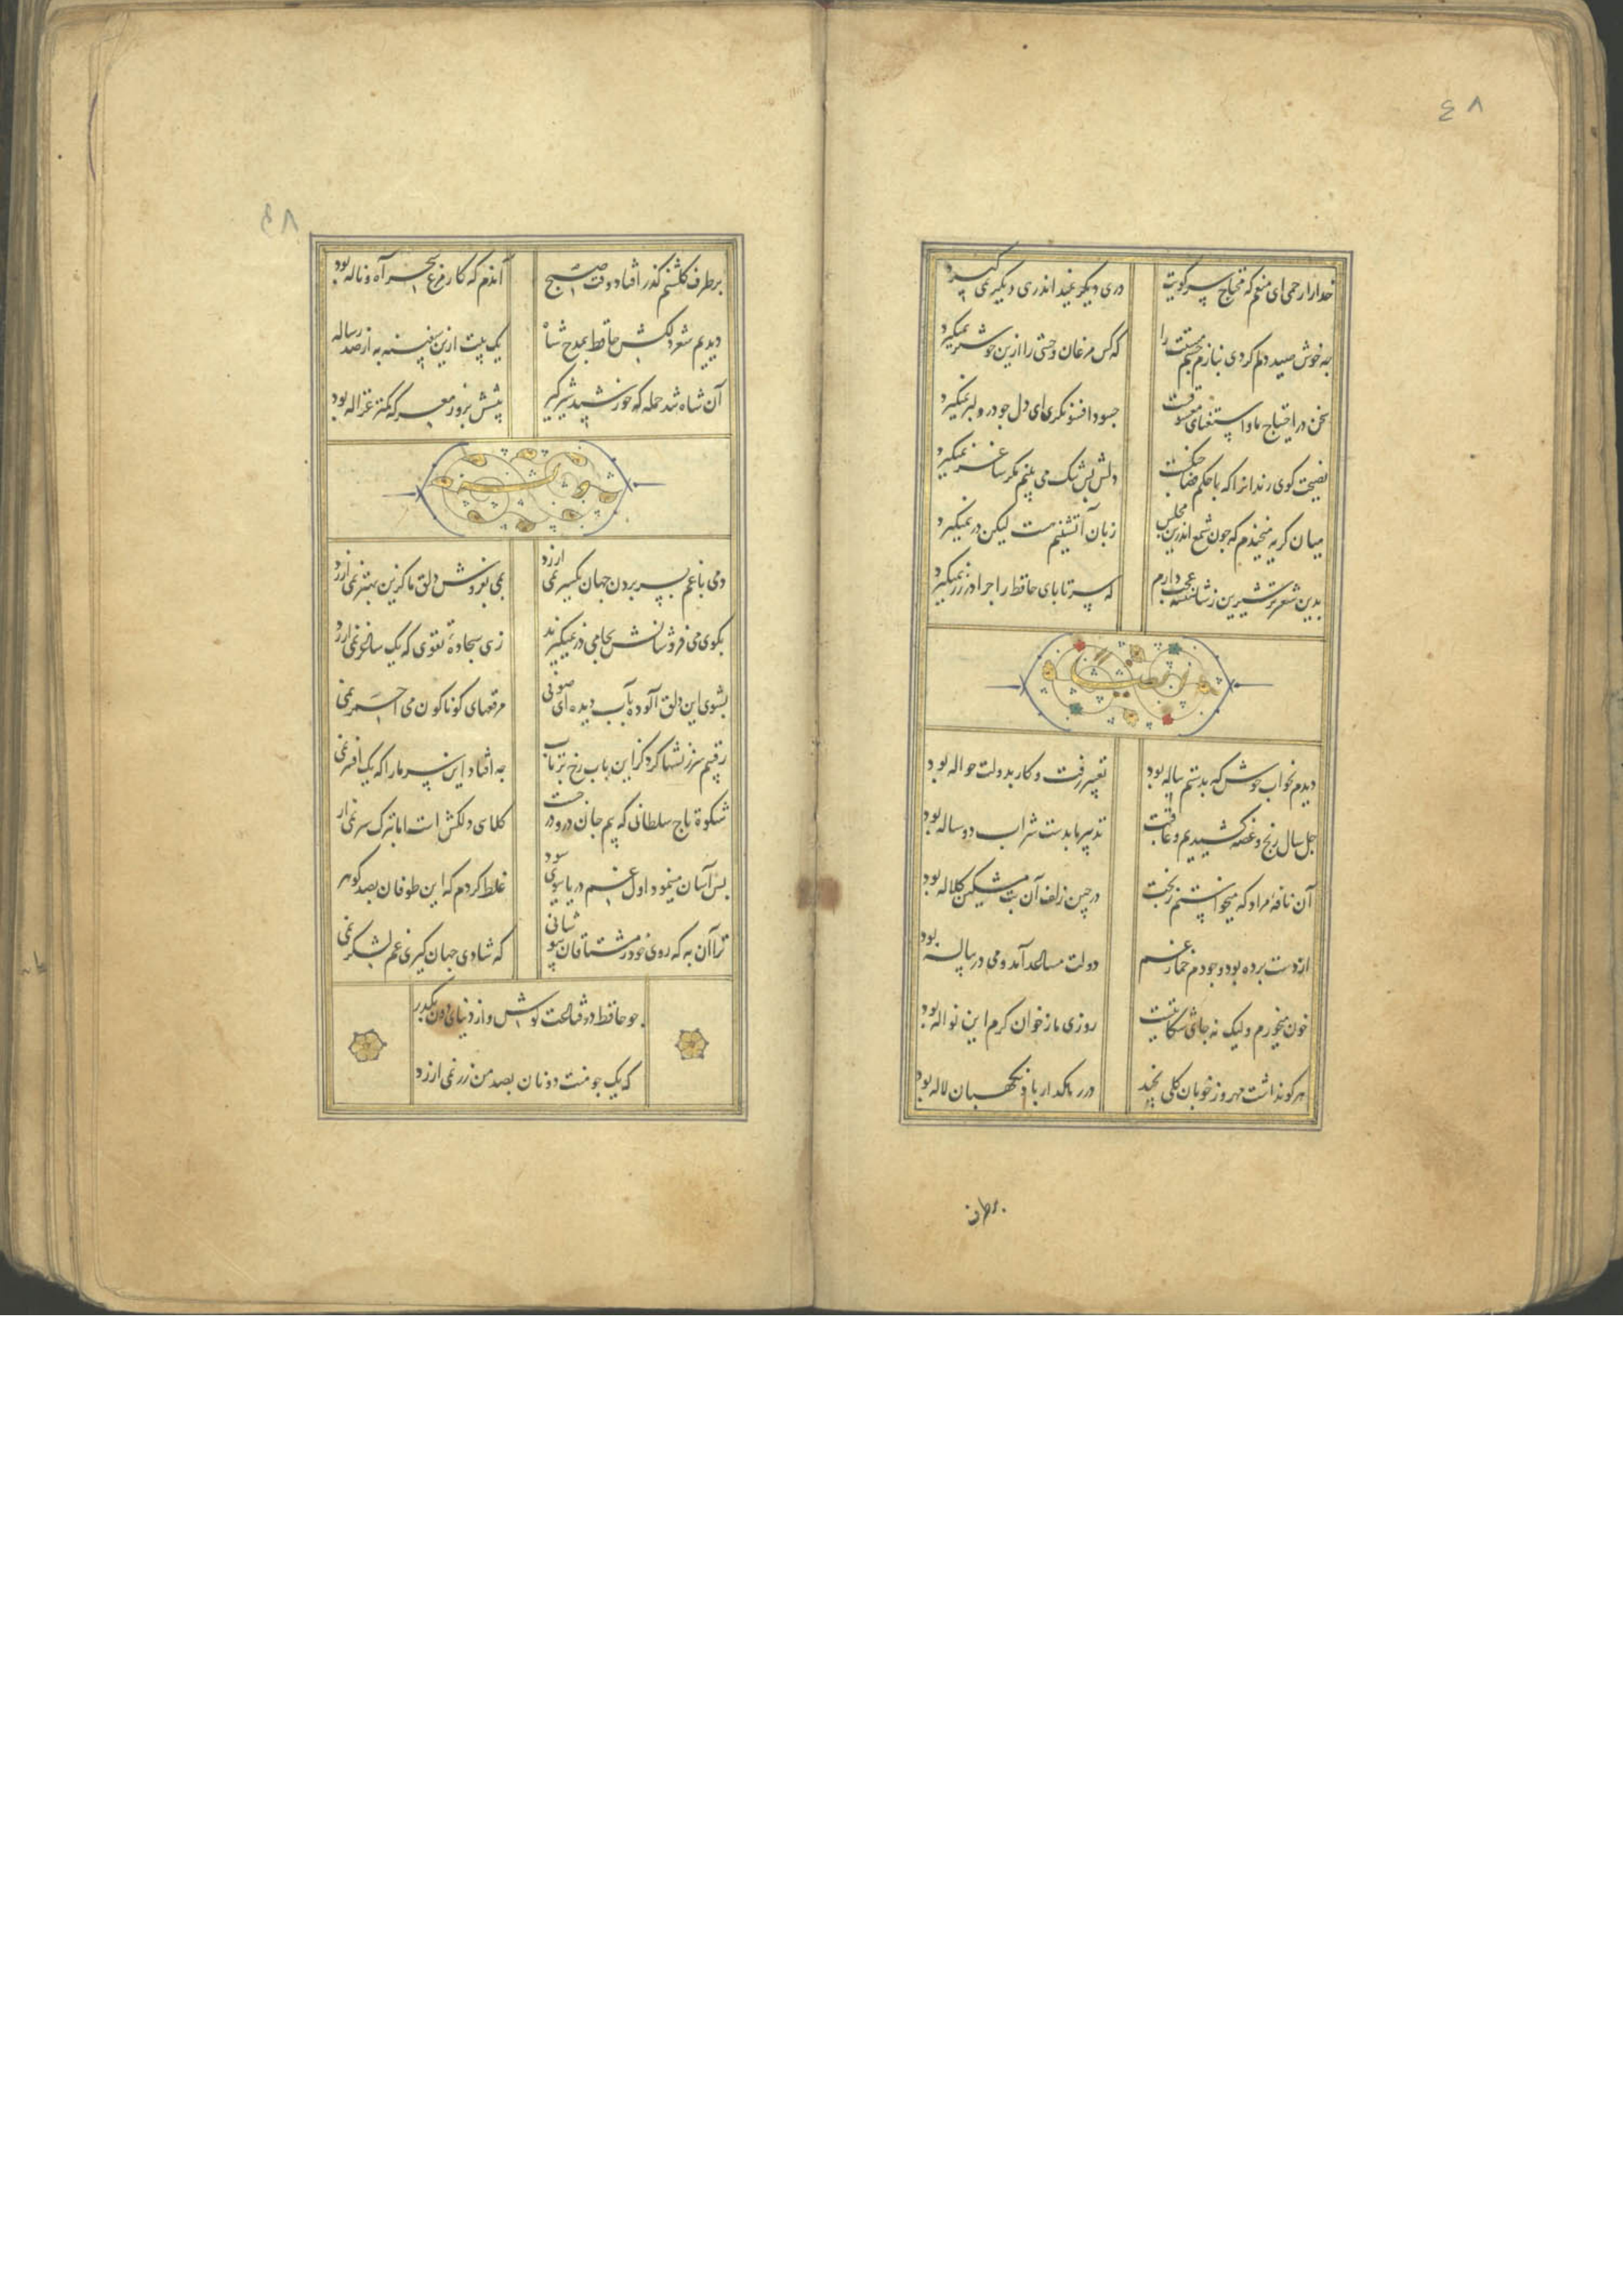 ٤٨
خدارا رحمی ای منعم که محتاج سر کویت
دری دیگر نمیداند رهی دیگر نمی گیرد
چه خوش صید دلم کردی بنازم چشم مستت را
که کس مرغان وحشی را ازین خوشتر نمیگیرد
سخن در احتیاج ما و استغنای معشوقست
چه سود افسونگری ای دل چو در دلبر نمیگیرد
نصیحت گوی رندانرا که با حکم قضا جنگست
دلش بس تنگ می بینم مگر ساغر نمیگیرد
میان گریه میخندم که چون شمع اندرین مجلس
زبان آتشینم هست لیکن در نمیگیرد
بدین شعر تر شیرین ز شاهنشه عجب دارم
که سر تا پای حافظ را چرا در زر نمیگیرد
دیدم بخواب خوش که بدستم پیاله بود
تعبیر رفت و کار بدولت حواله بود
چل سال رنج و غصه کشیدیم و عاقبت
تدبیر ما بدست شراب دو ساله بود
آن نافه مراد که میخواستم ز بخت
در چین زلف آن بت مشکین کلاله بود
از دست برده بود وجودم خمار غم
دولت مساعد آمد و می در پیاله بود
خون میخورم ولیک نه جای شکایتست
روزی ما ز خوان کرم این نواله بود
هر کو نداشت مهر و ز خوبان گلی نچید
در رهگذار باد نگهبان لاله بود
برطرف
٤٨
بر طرف گلشنم گذر افتاد وقت صبح
آندم که کار مرغ سحر آه و ناله بود
دیدیم شعر دلکش حافظ بمدح شاه
یک بیت ازین سفینه به از صد رساله
آن شاه تند حمله که خورشید شیر گیر
پیشش بروز معرکه کمتر غزاله بود
دمی با غم بسر بردن جهان یکسر نمی ارزد
بمی بفروش دلق ما کزین بهتر نمی ارزد
بکوی می فروشانش بجامی در نمیگیرند
زهی سجاده تقوی که یک ساغر نمی ارزد
بشوی این دلق آلوده بآب دیده ای صوفی
مرقعهای گوناگون می احمر نمی
رقیبم سرزنشها کرد کزین باب رخ برتاب
چه افتاد این سر ما را که یک افسر نمی
شکوه تاج سلطانی که بیم جان درو درجست
کلاهی دلکش است اما بترک سر نمی ارز
بس آسان مینمود اول غم دریا ببوی سود
غلط کردم که این طوفان بصد گوهر
ترا آن به که روی خود ز مشتاقان بپوشانی
که شادی جهان گیری غم لشکر نمی
چو حافظ در قناعت کوش و از دنیای دون بگذر
که یک جو منت دونان بصد من زر نمی ارزد